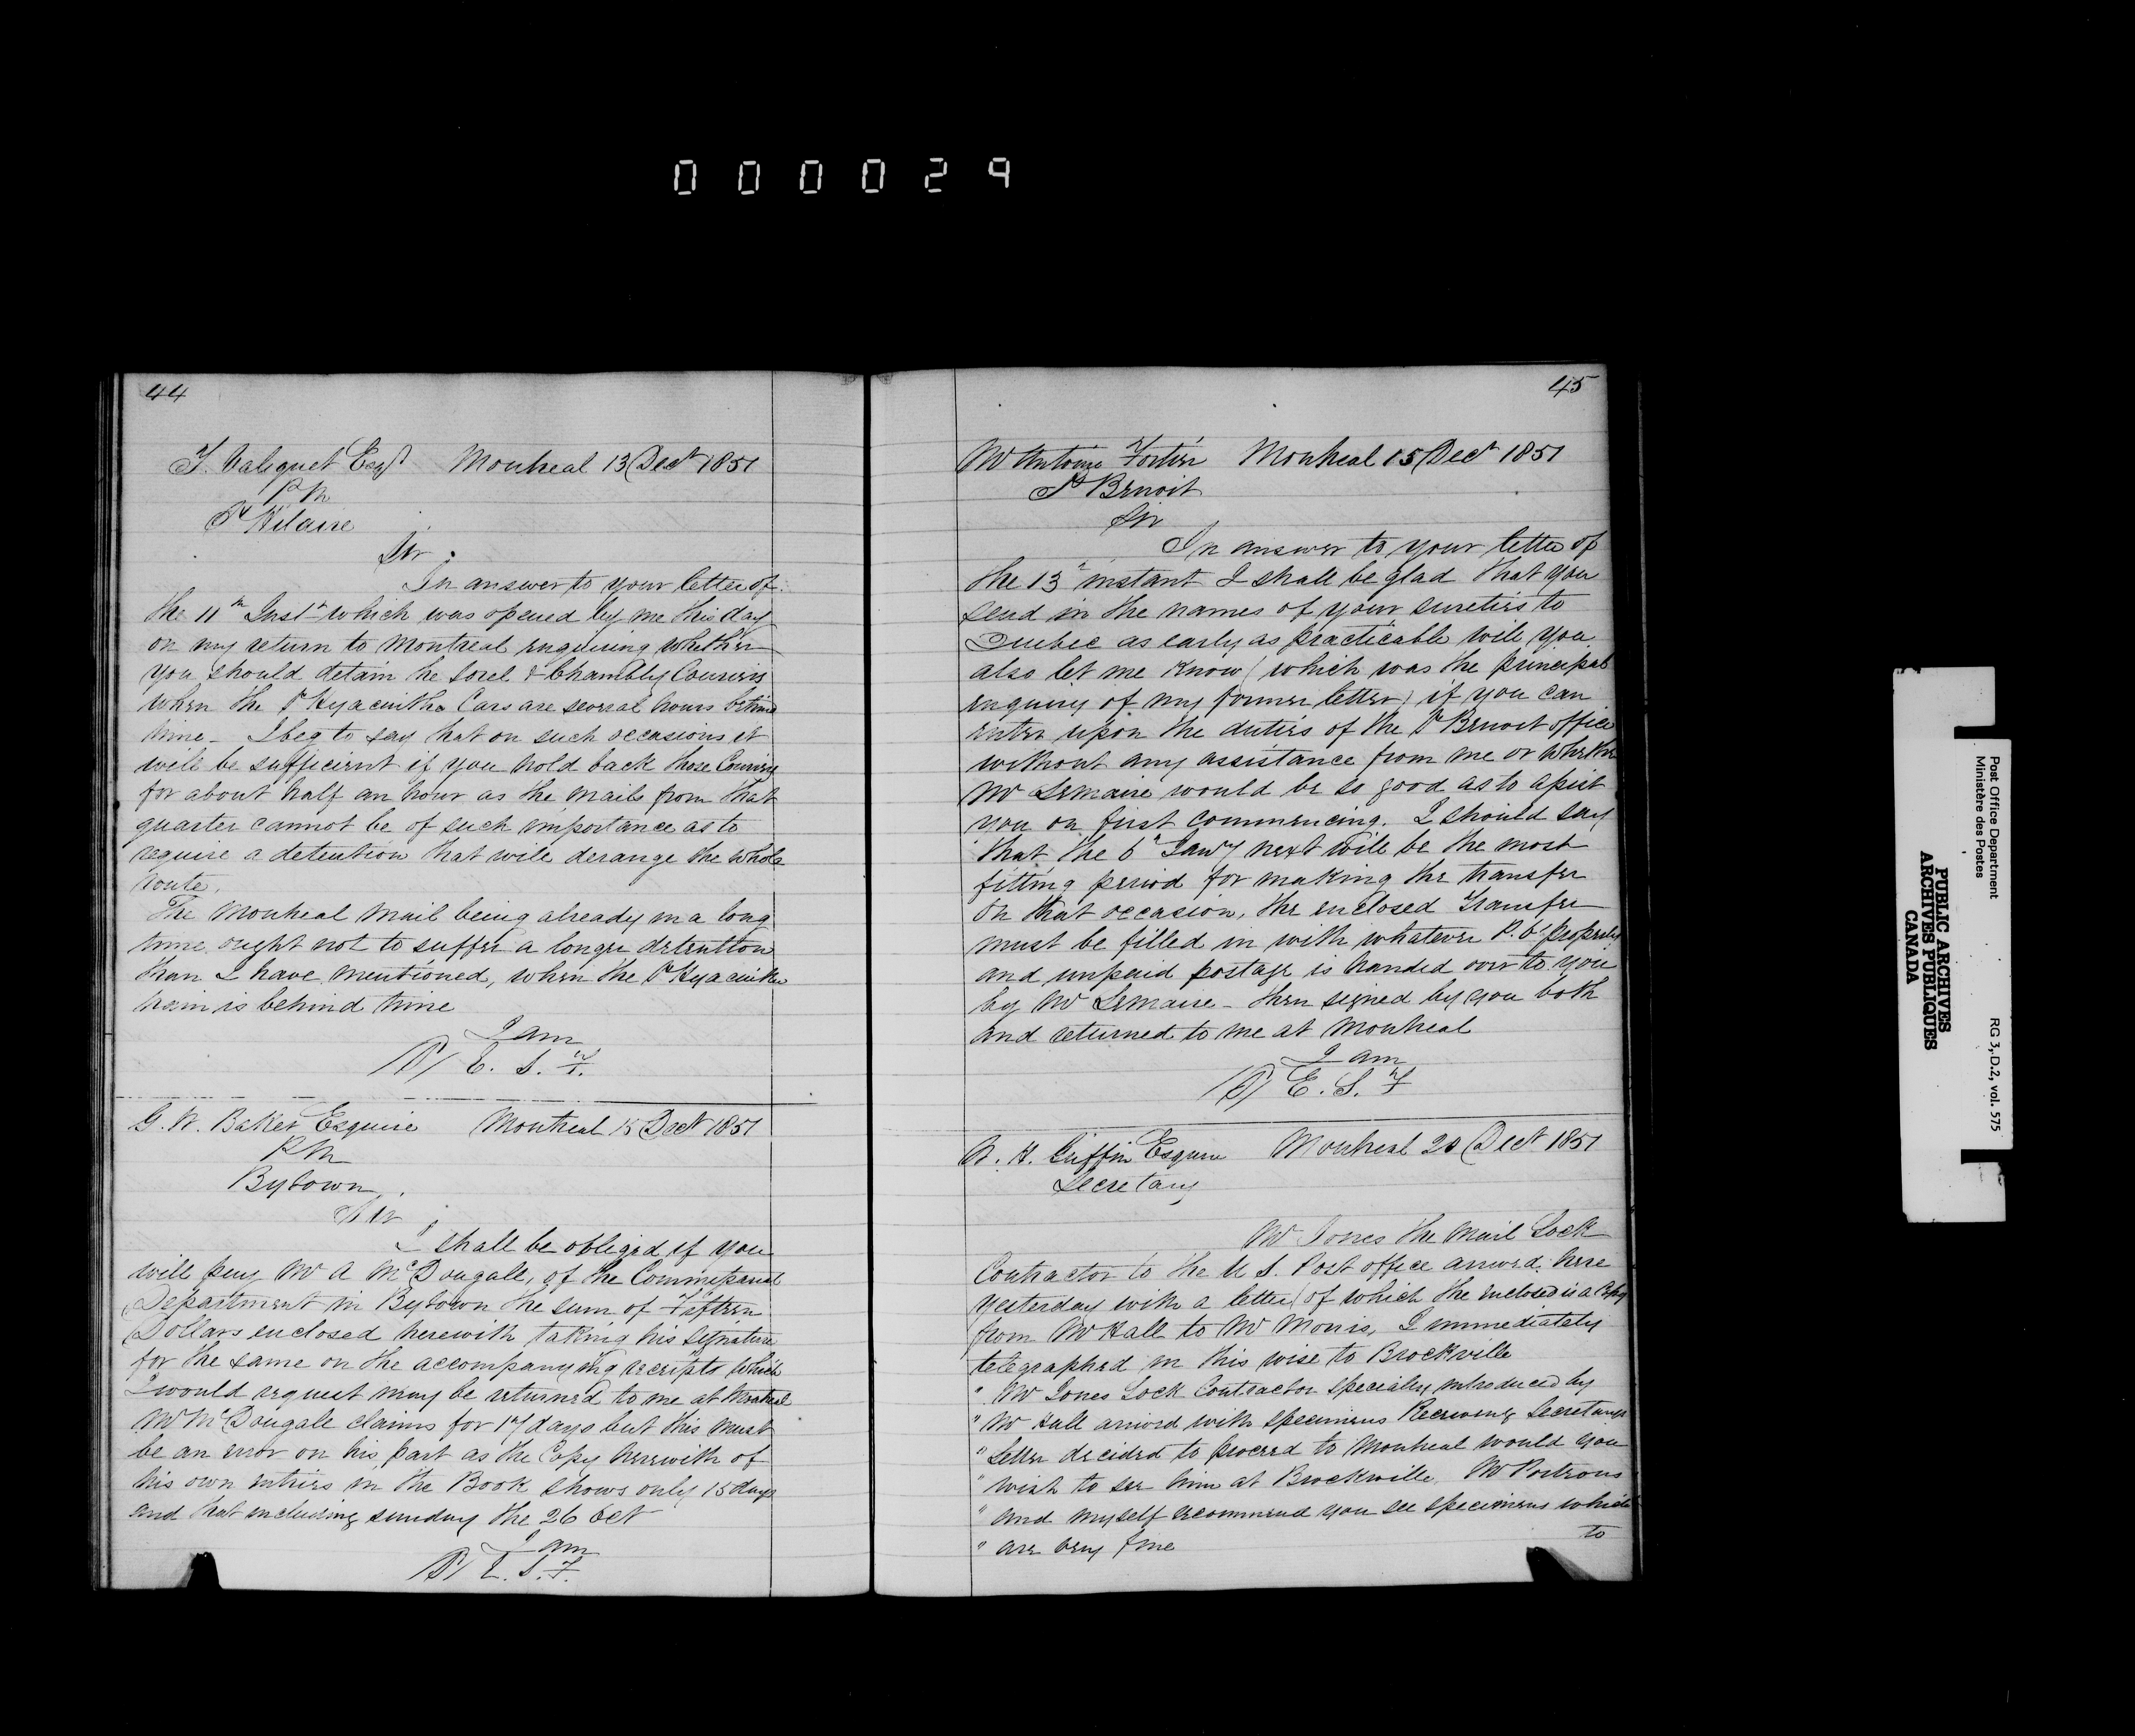 000029
44
T. Valiquet Esqr Montreal 13 Decr 1851
P M
St Hilaire
Sir
In answer to your letter of
the 11th Inst which was opened by me this day
on my return to Montreal enquiring whether
you should detain he Sorel & Chambly Couriers
when the St Hyacinthe Cars are several hours behind
time - I beg to say that on such occasions it
will be sufficient if you hold back those Couriers
for about half an hour as the mails from that
quarter cannot be of such importance as to
require a detention that will derange the whole
route.
The Montreal Mail being already on a long
time ought not to suffer a longer detention
than I have mentioned, when the St Hyacinthe
train is behind time
I am
(S) E. S. F.
G. W. Baker Esquire Montreal 15 Decr 1851
P M
Bytown
Sir
I shall be obliged if you
will pay Mr A McDougall, of the Commissariat
Department in Bytown the sum of Fifteen
Dollars enclosed herewith taking his signature
for the same on the accompanying receipts which
I would request may be returned to me at Montreal
Mr McDougall claims for 17 days but this must
be an error on his part as the Copy herewith of
his own entries in the Book shows only 15 days
and that including sunday the 26 Oct
I am
(S) E. S. F.
45
Mr Antoine Fortin Montreal 15 Decr 1851
St Benoit
Sir
In answer to your letter of
the 13th instant I shall be glad that you
send in the names of your sureties to
Quebec as early as practicable will you
also let me know (which was the principal
enquiry of my former letter) if you can
enter upon the duties of the St Benoit office
without any assistance from me or whether
Mr Lemaire would be so good as to assist
you on first commencing. I should say
that the 6th Jany next will be the most
fitting period for making the transfer
On that occasion, the enclosed Transfer
must be filled in with whatever P. O. property
and unpaid postage is handed over to you
by Mr Lemaire - then signed by you both
and returned to me at Montreal
I am
(S) E. S. F
W. H. Griffin Esquire Montreal 20 Decr 1851
Secretary
Mr Jones the Mail Lock
Contractor to the U S. Post office arrived here
yesterday with a letter (of which the enclosed is a Copy
from Mr Hall to Mr Morris, I immediately
telegraphed in this wise to Brockville
" Mr Jones Lock Contractor specially introduced by
" Mr Hall arrived with specimens Receiving Secretarys
" Letter decided to proceed to Montreal would you
" wish to see him at Brockville. Mr Porteous
" and myself recommend you see specimens which
" are very fine
to
Post Office Department
Ministère des Postes
RG 3, D.2, vol. 575
PUBLIC ARCHIVES
ARCHIVES PUBLIQUES
CANADA